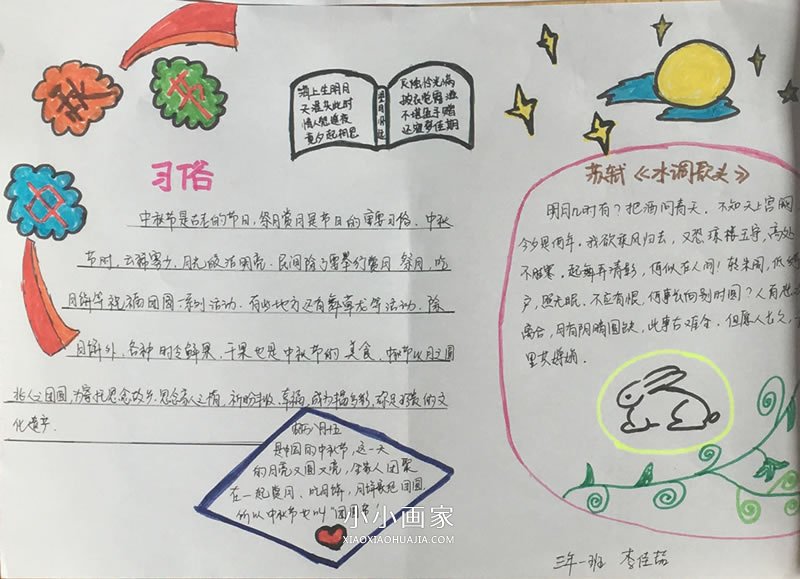 中
秋
节
海上生明月
天涯共此时
情人怨遥夜
竟夕起相思
灭烛怜光满
披衣觉露滋
不堪盈手赠
还寝梦佳期
习俗
中秋节是古老的节日,祭月赏月是节日的重要习俗。中秋
节时,云稀雾少,月光皎洁明亮。民间除了要举行赏月、祭月、吃
月饼等祝福团圆一系列活动。有些地方还有舞草龙等活动。除
月饼外,各种时令鲜果,干果也是中秋节的美食。中秋节以月之圆
兆人之团圆,为寄托思念故乡,思念亲人之情,祈盼丰收、幸福,成为
文
化遗产。
农历八月十五
是中国的中秋节,这一天
的月亮又圆又亮,全家人团聚
在一起赏月、吃月饼,月饼象征团圆,
所以中秋节也叫“团圆节”
苏轼《水调歌头》
明月几时有?把酒问青天。不知天上宫阙
今夕是何年。我欲乘风归去,又恐琼楼玉宇,高处
不胜寒。起舞弄清影,何似在人间!转朱阁,低绮
户,照无眠。不应有恨,何事长向别时圆?人有悲
离合,月有阴晴圆缺,此事古难全。但愿人长久,千
里共婵娟。
三年一班 李佳喆
小小画家
XIAOXIAOHUAJIA.COM